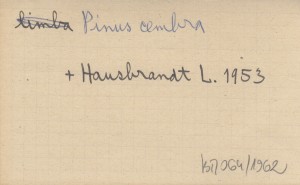 limba Pinus cembra
+ Hausbrandt L. 1953
/064/1962